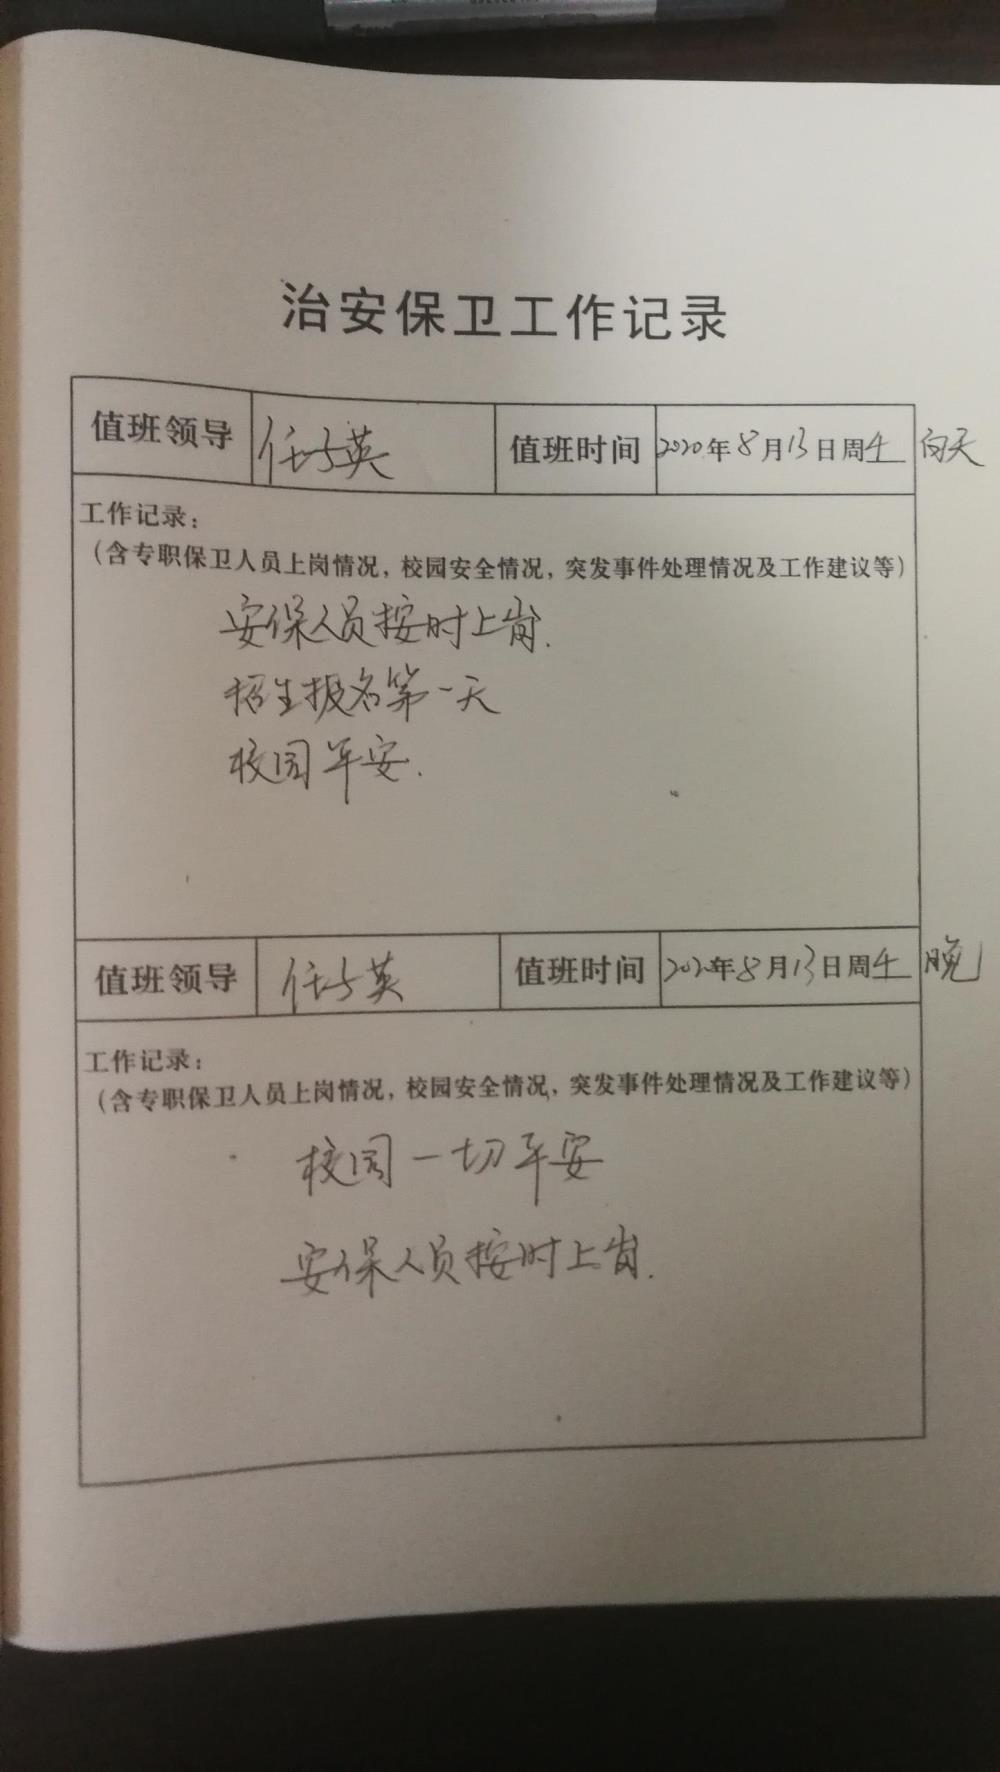 治安保卫工作记录
值班领导 任子英 值班时间 2020年8月13日周四 白天
工作记录：
（含专职保卫人员上岗情况，校园安全情况，突发事件处理情况及工作建议等）
安保人员按时上岗.
招生报名第一天
校园平安.
值班领导 任子英 值班时间 2020年8月13日周四 晚
工作记录：
（含专职保卫人员上岗情况，校园安全情况，突发事件处理情况及工作建议等）
校园一切平安
安保人员按时上岗.